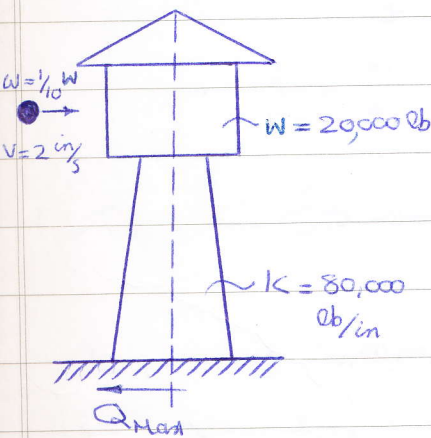 w = 1/10 W
V = 2 in/s
W = 20,000 lb
K = 80,000
lb/in
Q Max